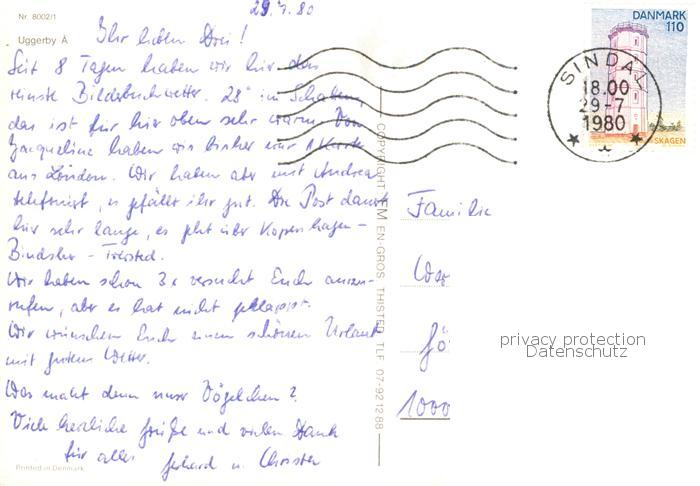 Nr. 8002/1
Uggerby Å
29.7.80
Ihr lieben Drei!
Seit 8 Tagen haben wir hier das
reinste Bilderbuchwetter. 28° im Schatten,
das ist für hier oben sehr warm. Von
Jacqueline haben wir bisher nur 1 Karte
aus London. Wir haben aber mit Andrea
telefoniert, es gefällt ihr gut. Die Post dauert
hier sehr lange, es geht über Kopenhagen -
Bindslev -
Wir haben schon 3x versucht Euch anzu-
rufen, aber es hat nicht geklappt.
Wir wünschen Euch einen schönen Urlaub
mit gutem Wetter.
Was macht denn unser Vögelchen?
Viele herzliche Grüße und vielen Dank
für alles Gerhard u. Christa
Printed in Denmark
COPYRIGHT FM EN-GROS THISTED TLF 07-921288
DANMARK
110
SKAGEN
SINDAL
18.00
29-7
1980
Familie
1000
privacy protection
Datenschutz